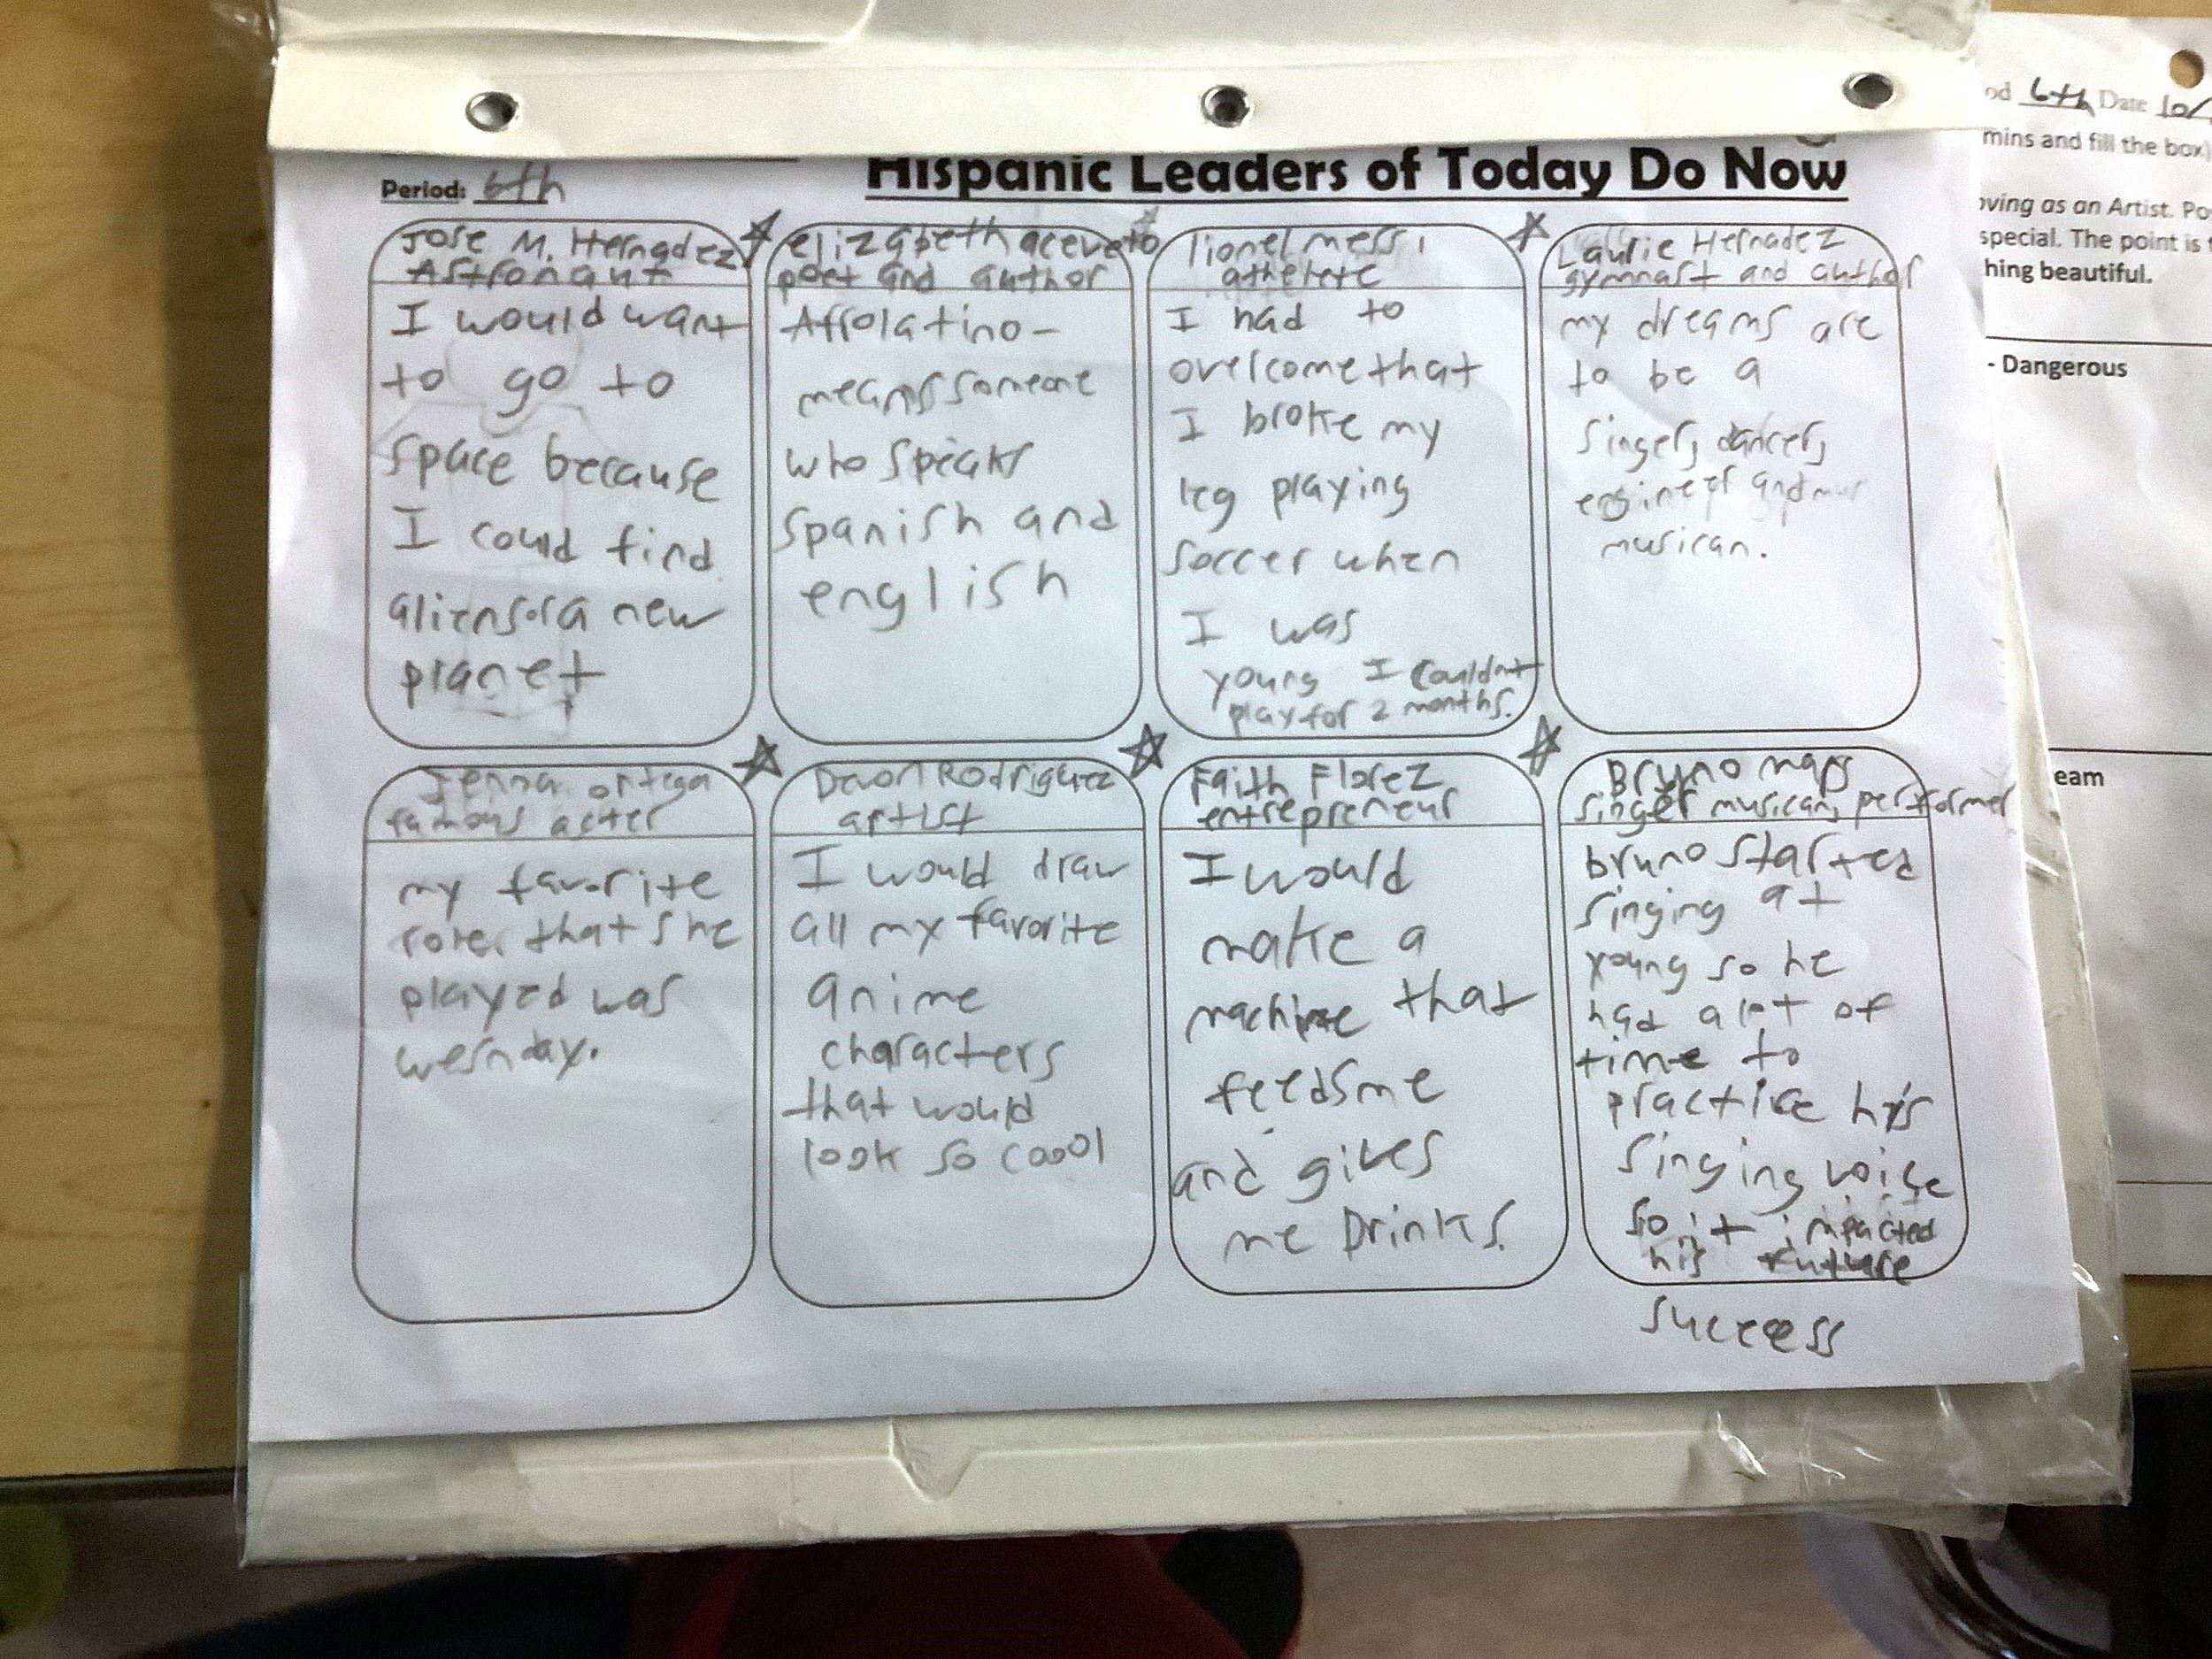 Hispanic Leaders of Today Do Now
Period: 6th
Jose M. Hernadez
Astronaut
I would want
to go to
space because
I could find
aliens or a new
planet
elizabeth aceveto
poet and author
Afrolatino-
means someone
who speaks
spanish and
english
lionel messi
athelete
I had to
overcome that
I broke my
leg playing
soccer when
I was
young I couldnt
play for 2 months.
Laurie Hernadez
gymnast and author
my dreams are
to be a
singer, dancer,
engineer and mus
musican.
Jenna ortega
famous acter
my favorite
role that she
played was
wesnday.
Devon Rodriguez
artist
I would draw
all my favorite
anime
characters
that would
look so coool
Faith Florez
entrepreneur
I would
make a
machine that
feeds me
and gives
me Drinks.
Bruno mars
singer musican, performer
bruno started
singing at
young so he
had a lot of
time to
practice his
singing voice
so it impacted
his future
success
od 6th Date 10/
mins and fill the box)
oving as an Artist. Po
special. The point is t
hing beautiful.
- Dangerous
eam